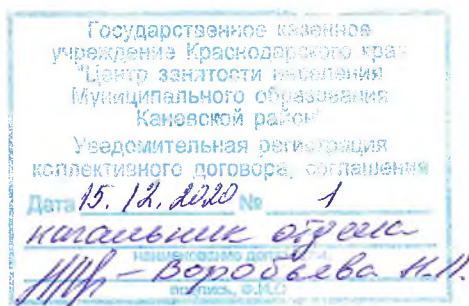 Государственное казенное
учреждение Краснодарского края
"Центр занятости населения
Муниципального образования
Каневской район"
Уведомительная регистрация
коллективного договора, соглашения
Дата 15.12.2020 № 1
начальник отдела
наименование должности,
Воробьева Н.П.
подпись, Ф.И.О